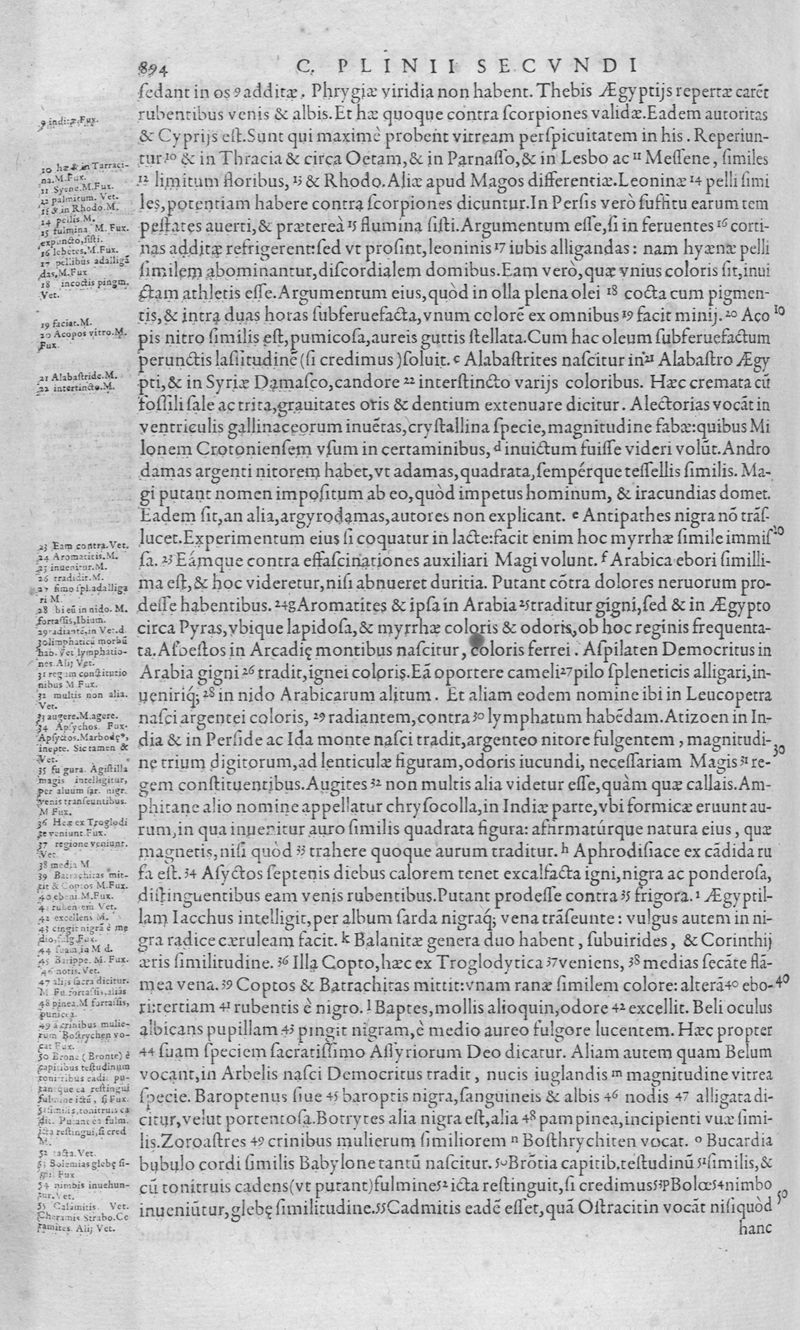 894
C. PLINII SECVNDI
ſedant in os 9 additæ. Phrygiæ viridia non habent. Thebis Ægyptijs repertæ carēt
rubentibus venis & albis. Et hæ quoque contra ſcorpiones validæ. Eadem autoritas
& Cyprijs eſt. Sunt qui maximè probent vitream perſpicuitatem in his. Reperiun-
tur 10 & in Thracia & circa Oetam, & in Parnaſſo, & in Lesbo ac 11 Meſſene, ſimiles
12 limitum floribus, 13 & Rhodo. Aliæ apud Magos differentiæ. Leoninæ 14 pelli ſimi
les, potentiam habere contra ſcorpiones dicuntur. In Perſis verò ſuffitu earum tem
peſtates auerti, & præterea 15 flumina ſiſti. Argumentum eſſe, ſi in feruentes 16 corti-
nas additæ refrigerent: ſed vt proſint, leoninis 17 iubis alligandas: nam hyænæ pelli
ſimilem abominantur, diſcordialem domibus. Eam verò, quæ vnius coloris ſit, inui
ctam athletis eſſe. Argumentum eius, quòd in olla plena olei 18 cocta cum pigmen-
tis, & intra duas horas ſubferuefacta, vnum colorē ex omnibus 19 facit minij. 20 Aco 10
pis nitro ſimilis eſt, pumicoſa, aureis guttis ſtellata. Cum hac oleum ſubferuefactum
perunctis laſſitudinē (ſi credimus) ſoluit. c Alabaſtrites naſcitur in 21 Alabaſtro Ægy
pti, & in Syriæ Damaſco, candore 22 interſtincto varijs coloribus. Hæc cremata cū
foſſili ſale ac trita, grauitates oris & dentium extenuare dicitur. Alectorias vocāt in
ventriculis gallinaceorum inuētas, cryſtallina ſpecie, magnitudine fabæ: quibus Mi
lonem Crotonienſem vſum in certaminibus, d inuictum fuiſſe videri volūt. Andro
damas argenti nitorem habet, vt adamas, quadrata, ſempérque teſſellis ſimilis. Ma-
gi putant nomen impoſitum ab eo, quòd impetus hominum, & iracundias domet.
Eadem ſit, an alia, argyrodamas, autores non explicant. e Antipathes nigra nō trāſ-
lucet. Experimentum eius ſi coquatur in lacte: facit enim hoc myrrhæ ſimile immiſ 20
ſa. 23 Eámque contra effaſcinationes auxiliari Magi volunt. f Arabica ebori ſimilli-
ma eſt, & hoc videretur, niſi abnueret duritia. Putant cōtra dolores neruorum pro-
deſſe habentibus. 24 g Aromatites & ipſa in Arabia 25 traditur gigni, ſed & in Ægypto
circa Pyras, vbique lapidoſa, & myrrhæ coloris & odoris, ob hoc reginis frequenta-
ta. Aſbeſtos in Arcadię montibus naſcitur, coloris ferrei. Aſpilaten Democritus in
Arabia gigni 26 tradit, ignei coloris. Eā oportere cameli 27 pilo ſpleneticis alligari, in-
ueniriq; 28 in nido Arabicarum alitum. Et aliam eodem nomine ibi in Leucopetra
naſci argentei coloris, 29 radiantem, contra 30 lymphatum habēdam. Atizoen in In-
dia & in Perſide ac Ida monte naſci tradit, argenteo nitore fulgentem, magnitudi- 30
ne trium digitorum, ad lenticulæ figuram, odoris iucundi, neceſſariam Magis 31 re-
gem conſtituentibus. Augites 32 non multis alia videtur eſſe, quàm quæ callais. Am-
phitane alio nomine appellatur chryſocolla, in Indiæ parte, vbi formicæ eruunt au-
rum, in qua inuenitur auro ſimilis quadrata figura: affirmatúrque natura eius, quæ
magnetis, niſi quòd 33 trahere quoque aurum traditur. h Aphrodiſiace ex cādida ru
fa eſt. 34 Aſyctos ſeptenis diebus calorem tenet excalfacta igni, nigra ac ponderoſa,
diſtinguentibus eam venis rubentibus. Putant prodeſſe contra 35 frigora. i Ægyptil-
lam Iacchus intelligit, per album ſarda nigraq; vena trāſeunte: vulgus autem in ni-
gra radice cæruleam facit. k Balanitæ genera duo habent, ſubuirides, & Corinthij
æris ſimilitudine. 36 Illa Copto, hæc ex Troglodytica 37 veniens, 38 medias ſecāte flā-
mea vena. 39 Coptos & Batrachitas mittit: vnam ranæ ſimilem colore: alterā 40 ebo- 40
ri: tertiam 41 rubentis è nigro. l Baptes, mollis alioquin, odore 42 excellit. Beli oculus
albicans pupillam 43 pingit nigram, è medio aureo fulgore lucentem. Hæc propter
44 ſuam ſpeciem ſacratiſſimo Aſſyriorum Deo dicatur. Aliam autem quam Belum
vocant, in Arbelis naſci Democritus tradit, nucis iuglandis m magnitudine vitrea
ſpecie. Baroptenus ſiue 45 baroptis nigra, ſanguineis & albis 46 nodis 47 alligata di-
citur, velut portentoſa. Botrytes alia nigra eſt, alia 48 pampinea, incipienti vuæ ſimi-
lis. Zoroaſtres 49 crinibus mulierum ſimiliorem n Boſthrychiten vocat. o Bucardia
bubulo cordi ſimilis Babylone tantū naſcitur. 50 Brōtia capitib. teſtudinū 51 ſimilis, &
cū tonitruis cadens (vt putant) fulmine 52 icta reſtinguit, ſi credimus 53 p Bolœ 54 nimbo
inueniūtur, glebę ſimilitudine. 55 Cadmitis eadē eſſet, quā Oſtracitin vocāt niſi quòd 50
hanc
9 inditæ. Fux.
10 hæ & in Tarraci-
na. M. Fux.
11 Syene. M. Fux.
12 palmitum. Vet.
13 & in Rhodo. M.
14 pellis. M.
15 fulmina M. Fux.
expuncto, ſiſti.
16 lebetes. M. Fux.
17 pellibus adalligā
das. M. Fux
18 incoctis pingm.
Vet.
19 faciat. M.
20 Acopos vitro. M.
Fux.
21 Alabaſtride. M.
22 intertincto. M.
23 Eam contra. Vet.
24 Aromatitis. M.
25 inuenitur. M.
26 tradidit. M.
27 fimo ſpl. adalliga
ri M.
28 bi eū in nido. M.
fortaſſis, Ibium.
29 radiantē, in Ver. d
30 limphaticū morbū
hab. vet lymphatio-
nes. Alij Vet.
31 regum conſtitutio
nibus M Fux.
32 multis non alia.
Vet.
33 augere. M. agere.
34 Apſychos. Fux.
Apſyctos. Marbodę,
inepte. Sic tamen &
Vet.
35 fu gura. Ägiſtilla
magis intelligitur,
per aluum ſar. nigr.
venis tranſeuntibus.
M Fux.
36 Hæc ex Troglodi
te veniunt. Fux.
37 regione veniunt.
Vet.
38 media M
39 Batrachitas mit-
tit & Coptos M. Fux.
40 ebeni. M. Fux.
41 rubentem Vet.
42 excellens M.
43 cingit nigrā è me
dio, fulg. Fux.
44 ſuam, ia M d.
45 Barippe. M. Fux.
46 notis. Vet.
47 alijs ſacra dicitur.
48 pinea. M fortaſſis,
punicea.
49 à crinibus mulie-
rum Boſtrychen vo-
cat Fux.
50 Brone (Bronte) è
capitibus teſtudinum
tonitribus cadit pu-
tantque ea reſtingui
fulmine ictū, ſi Fux.
51 ſimilis, tonitruis ca
dit. Putant ex fulm.
icta reſtingui, ſi cred
M.
52 tacta. Vet.
53 Bolemias glebę ſi-
54 nimbis inuehun-
tur. Vet.
55 Calamitis Vet.
Cheramis Strabo. Ce
ramites Alij Vet.